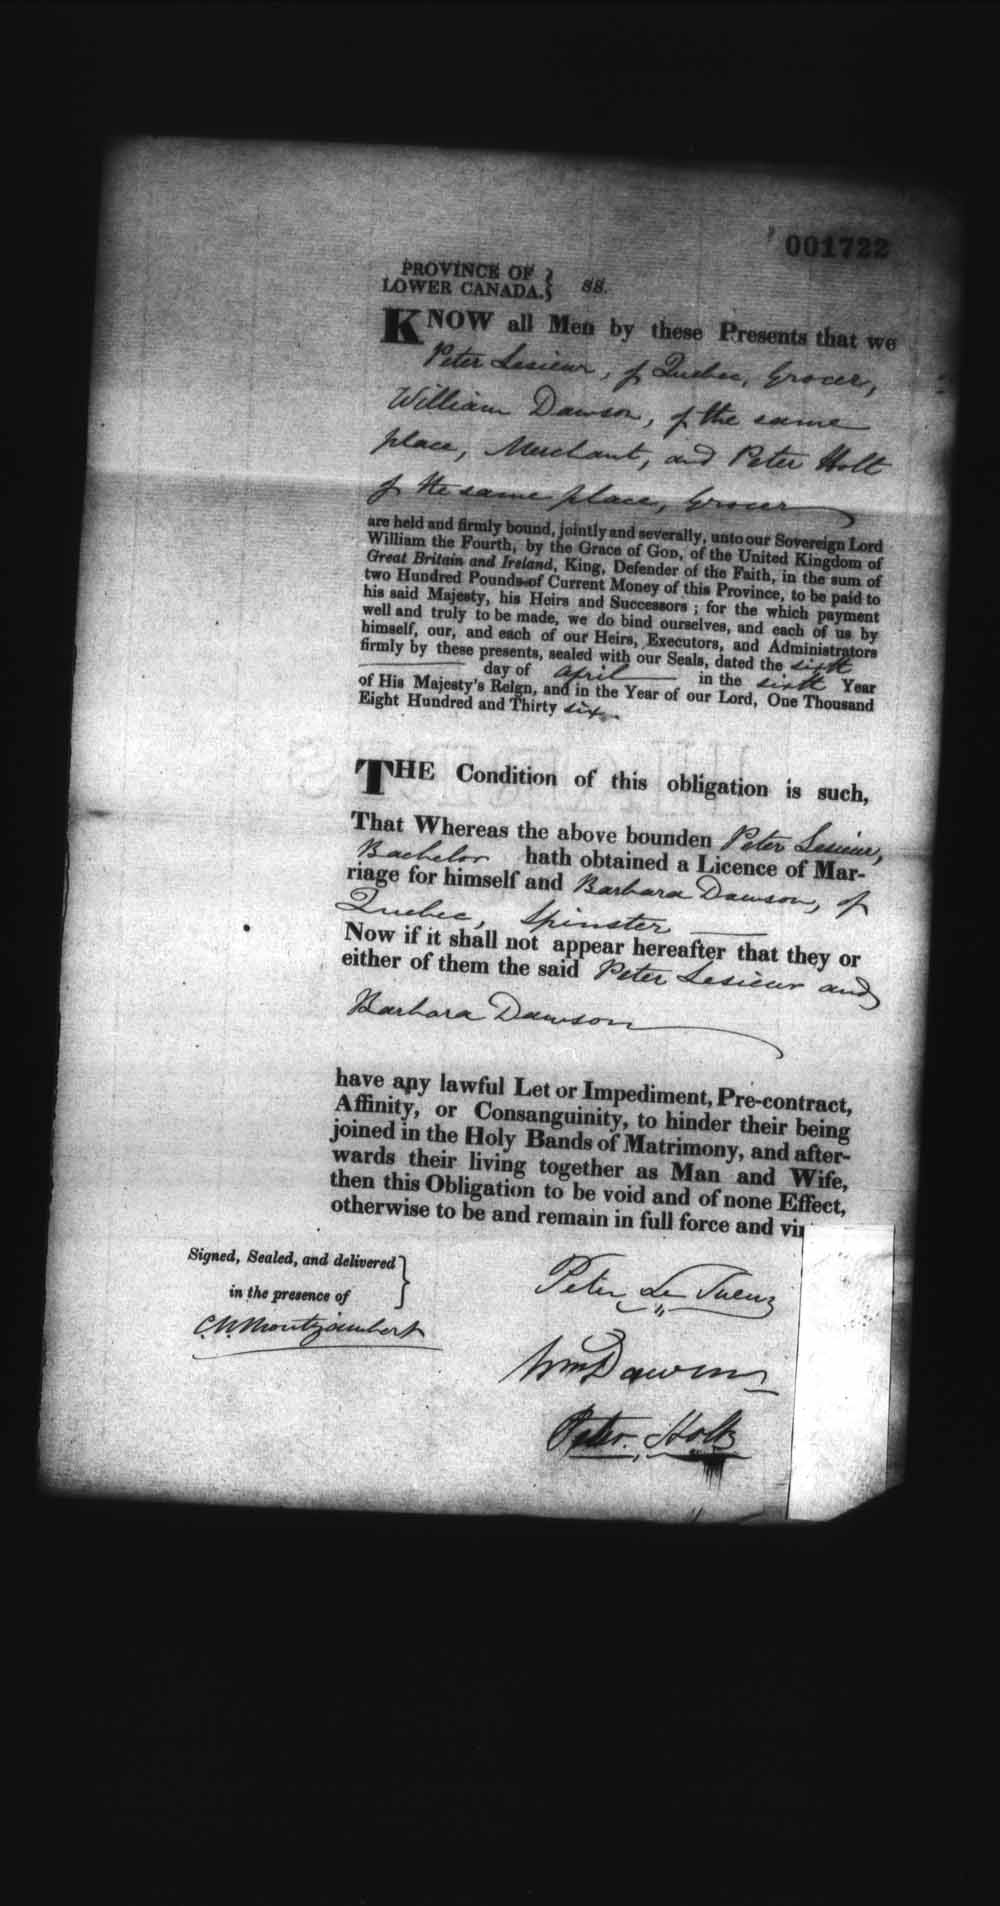 001722
PROVINCE OF }
LOWER CANADA. } ss.
KNOW all Men by these Presents that we
Peter Lesieur, of Quebec, Grocer,
William Dawson, of the same
place, Merchant, and Peter Holt
of the same place, Grocer
are held and firmly bound, jointly and severally, unto our Sovereign Lord
William the Fourth, by the Grace of GOD, of the United Kingdom of
Great Britain and Ireland, King, Defender of the Faith, in the sum of
two Hundred Pounds of Current Money of this Province, to be paid to
his said Majesty, his Heirs and Successors ; for the which payment
well and truly to be made, we do bind ourselves, and each of us by
himself, our, and each of our Heirs, Executors, and Administrators
firmly by these presents, sealed with our Seals, dated the sixth
day of April in the sixth Year
of His Majesty's Reign, and in the Year of our Lord, One Thousand
Eight Hundred and Thirty six.
THE Condition of this obligation is such,
That Whereas the above bounden Peter Lesieur,
Bachelor hath obtained a Licence of Mar-
riage for himself and Barbara Dawson, of
Quebec, Spinster
Now if it shall not appear hereafter that they or
either of them the said Peter Lesieur and
Barbara Dawson
have any lawful Let or Impediment, Pre-contract,
Affinity, or Consanguinity, to hinder their being
joined in the Holy Bands of Matrimony, and after-
wards their living together as Man and Wife,
then this Obligation to be void and of none Effect,
otherwise to be and remain in full force and vi
Signed, Sealed, and delivered }
in the presence of
Peter Le
Wm Dawson
Peter Holt